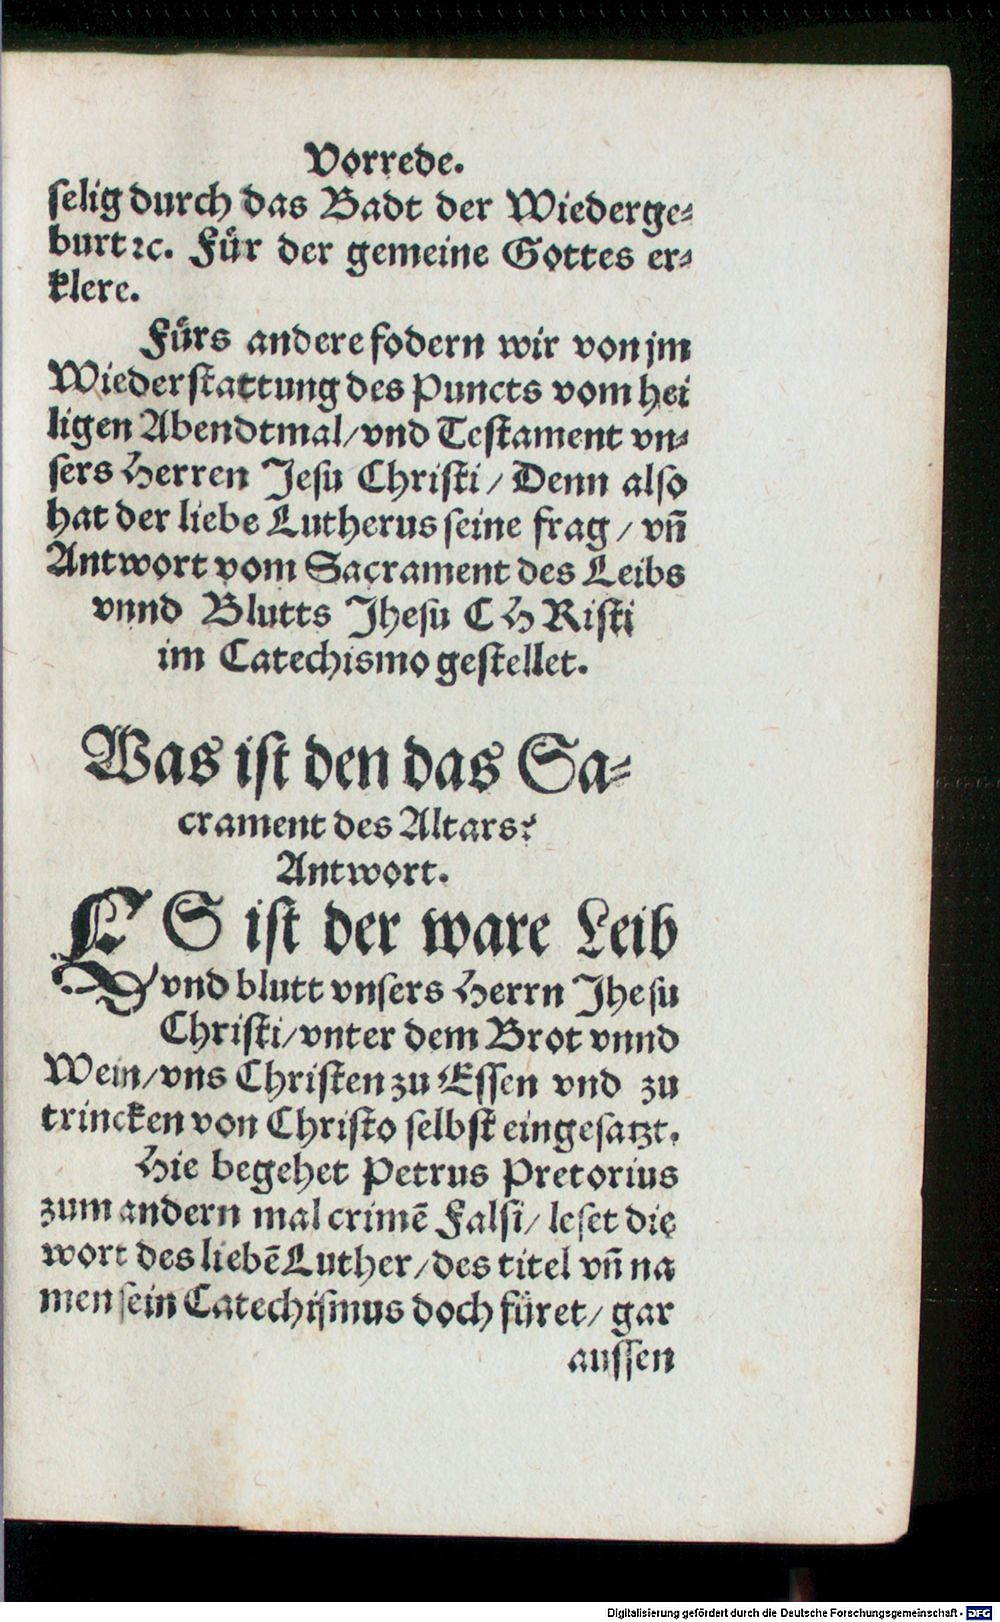 Vorrede.
selig durch das Badt der Wiederge⸗
burt ꝛc. Für der gemeine Gottes er⸗
klere.
Fürs andere fodern wir von jm
Wiederstattung des Puncts vom hei
ligen Abendtmal/ vnd Testament vn⸗
sers Herren Jesu Christi/ Denn also
hat der liebe Lutherus seine frag/ vñ
Antwort vom Sacrament des Leibs
vnnd Blutts Jhesu CHRisti
im Catechismo gestellet.
Was ist den das Sa⸗
crament des Altars?
Antwort.
ES ist der ware Leib
vnd blutt vnsers Herrn Jhesu
Christi/ vnter dem Brot vnnd
Wein/ vns Christen zu Essen vnd zu
trincken von Christo selbst eingesatzt.
Hie begehet Petrus Pretorius
zum andern mal crimẽ Falsi/ leset die
wort des liebẽ Luther/ des titel vñ na
men sein Catechismus doch füret/ gar
aussen
Digitalisierung gefördert durch die Deutsche Forschungsgemeinschaft - DFG